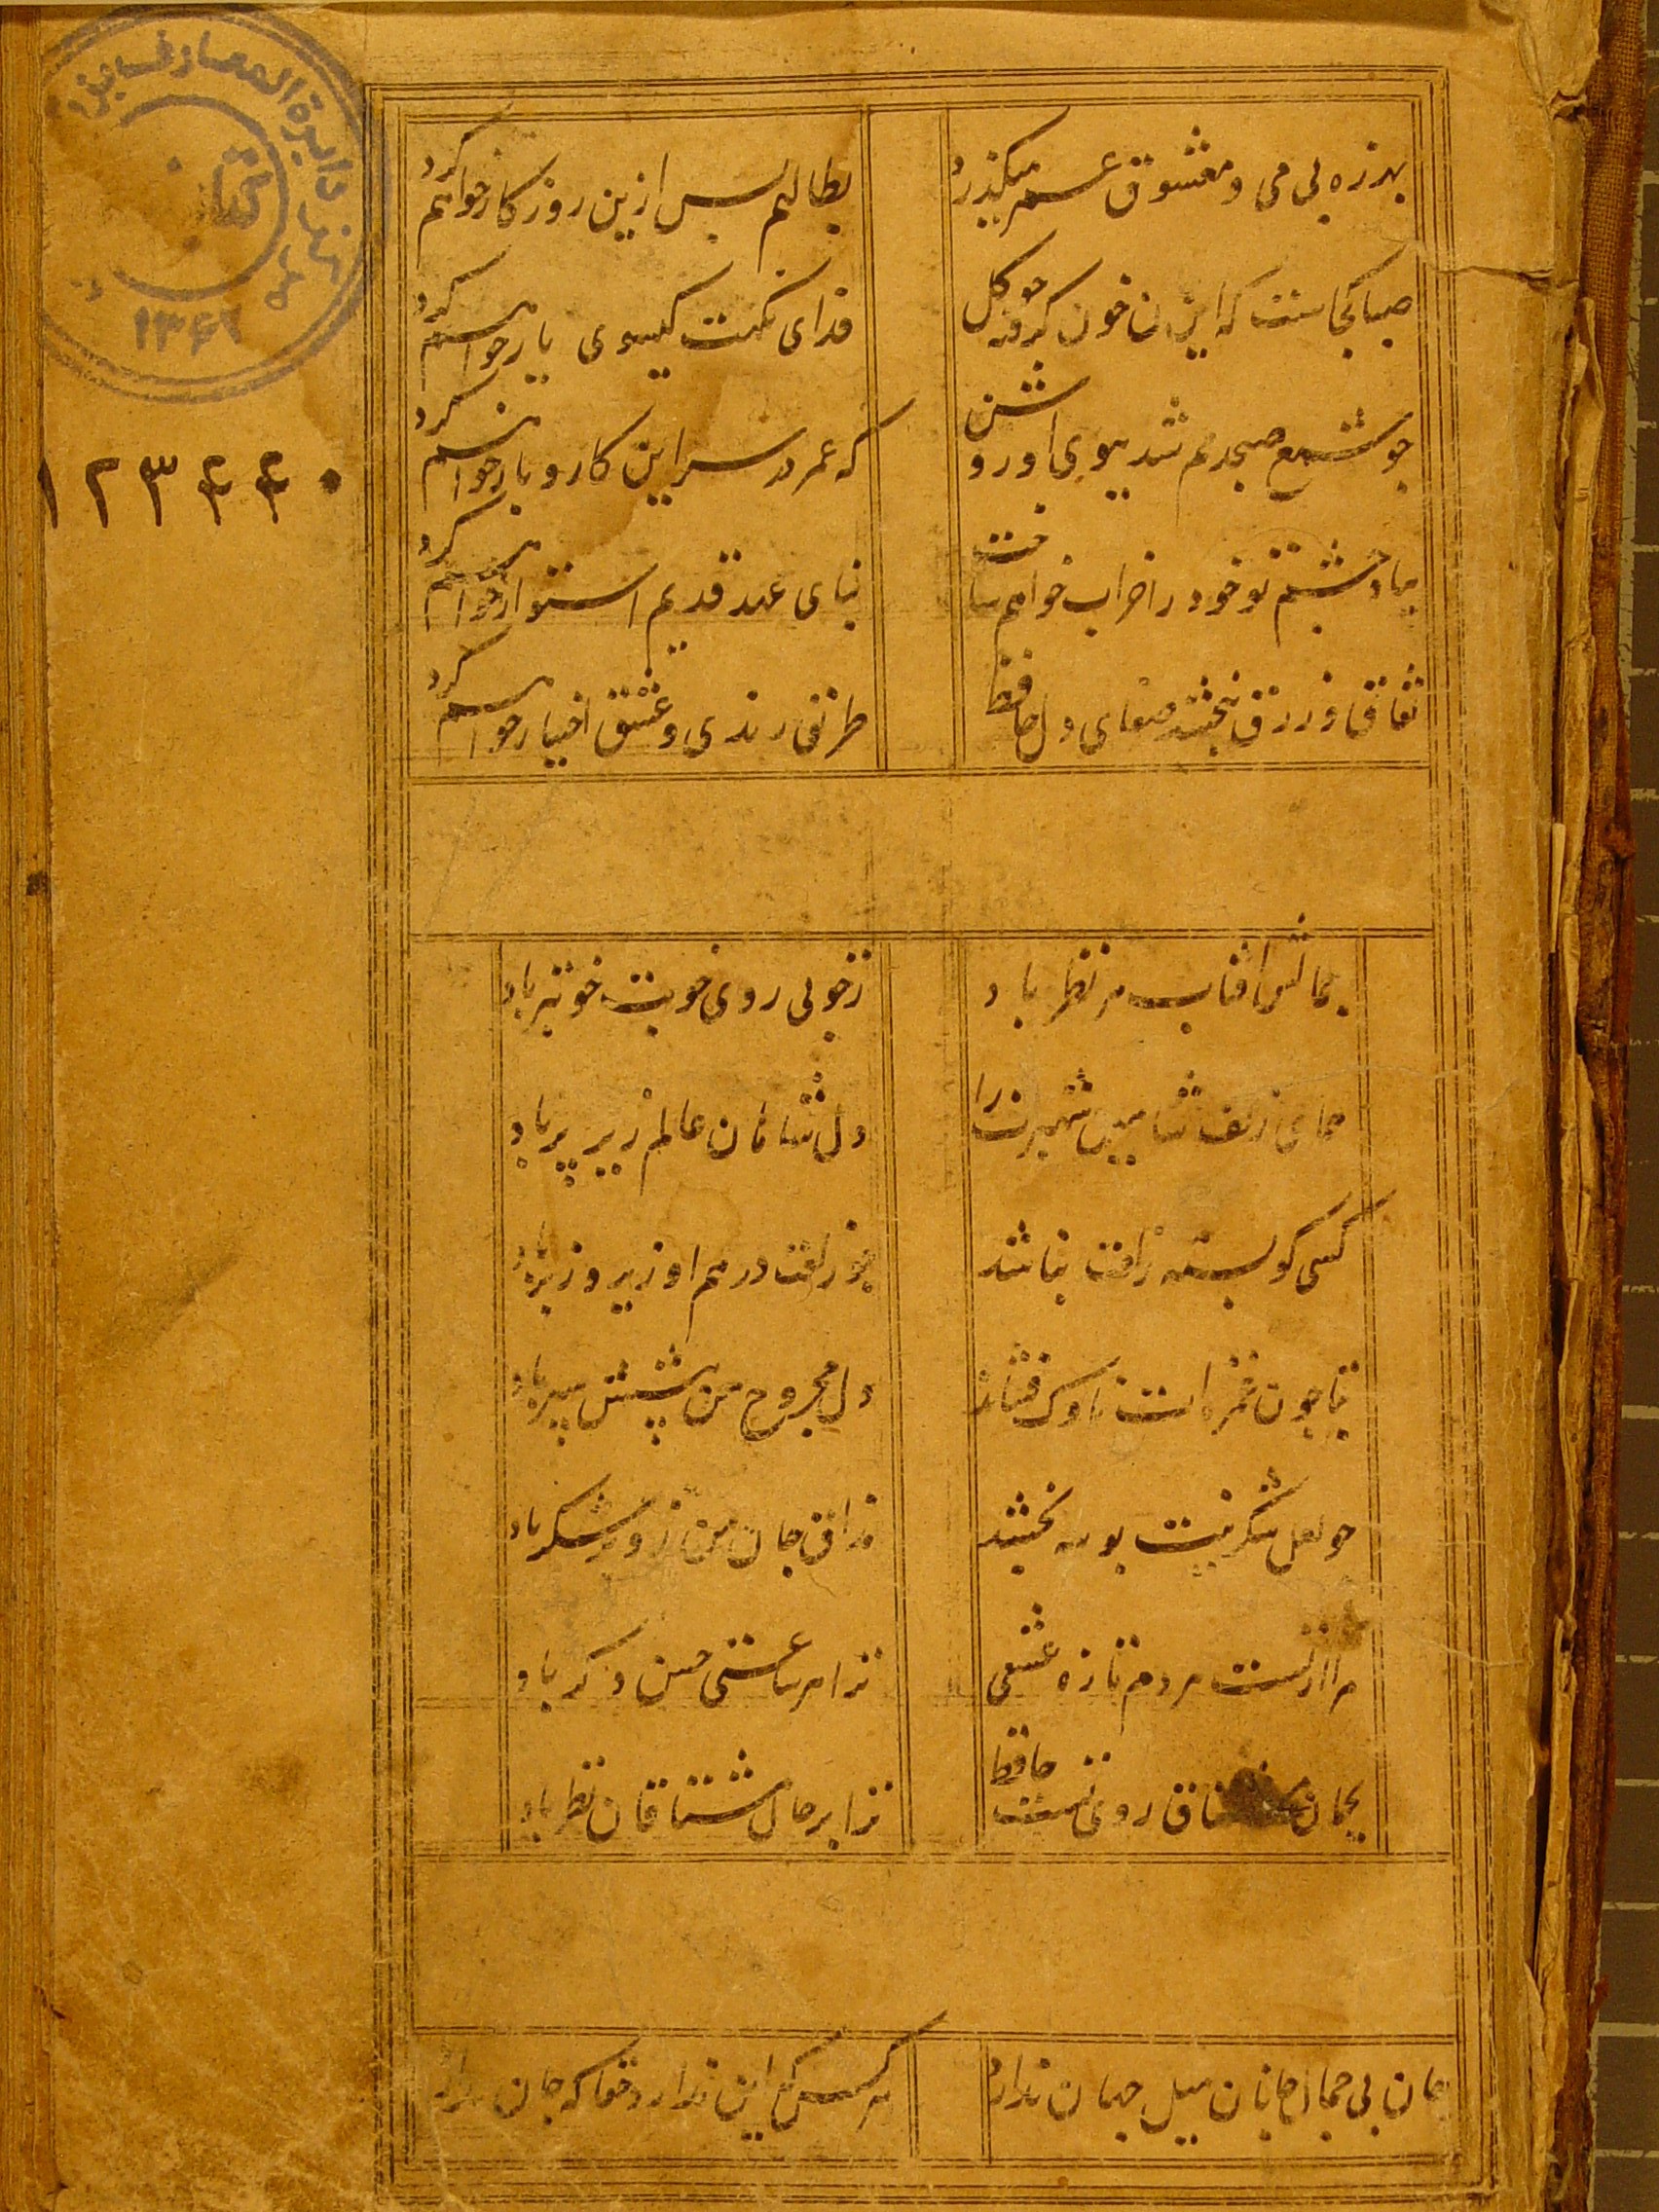 بهرزه بی می و معشوق عمر میگذرد
بطالتم بس ازین روز کار خواهم کرد
صبا کجاست که این جان خون گرفته جو کل
فدای نکهت کیسوی یار خواهم کرد
جو شمع صبحدمم شد ببوی او روشن
که عمر در سر این کار و بار خواهم کرد
بیاد چشم تو خود را خراب خواهم ساخت
بنای عهد قدیم استوار خواهم کرد
نفاق و زرق نبخشد صفای دل حافظ
طریق رندی و عشق اختیار خواهم کرد
جمالش افتاب هر نظر باد
زخوبی روی خوبت خوبتر باد
همای زلف شاهین شهپرت را
دل شاهان عالم زیر پر باد
کسی کو بسته زلفت نباشد
چو زلفت درهم او زیر و زبر باد
بتا چون غمزه ات ناوک فشاند
دل مجروح من پیشش سپر باد
جو لعل شکرینت بوسه بخشد
مذاق جان من زو پر شکر باد
مرا از تست هر دم تازه عشقی
ترا هر ساعتی حسن دکر باد
بجان مشتاق روی تست حافظ
ترا بر حال مشتاقان نظر باد
جان بی جمال جانان میل جهان ندارد
هر کس که این ندارد حقا که جان ندارد
دایرة المعارف
کتاب
۱۳۶۲
۱۲۳۴۴۰